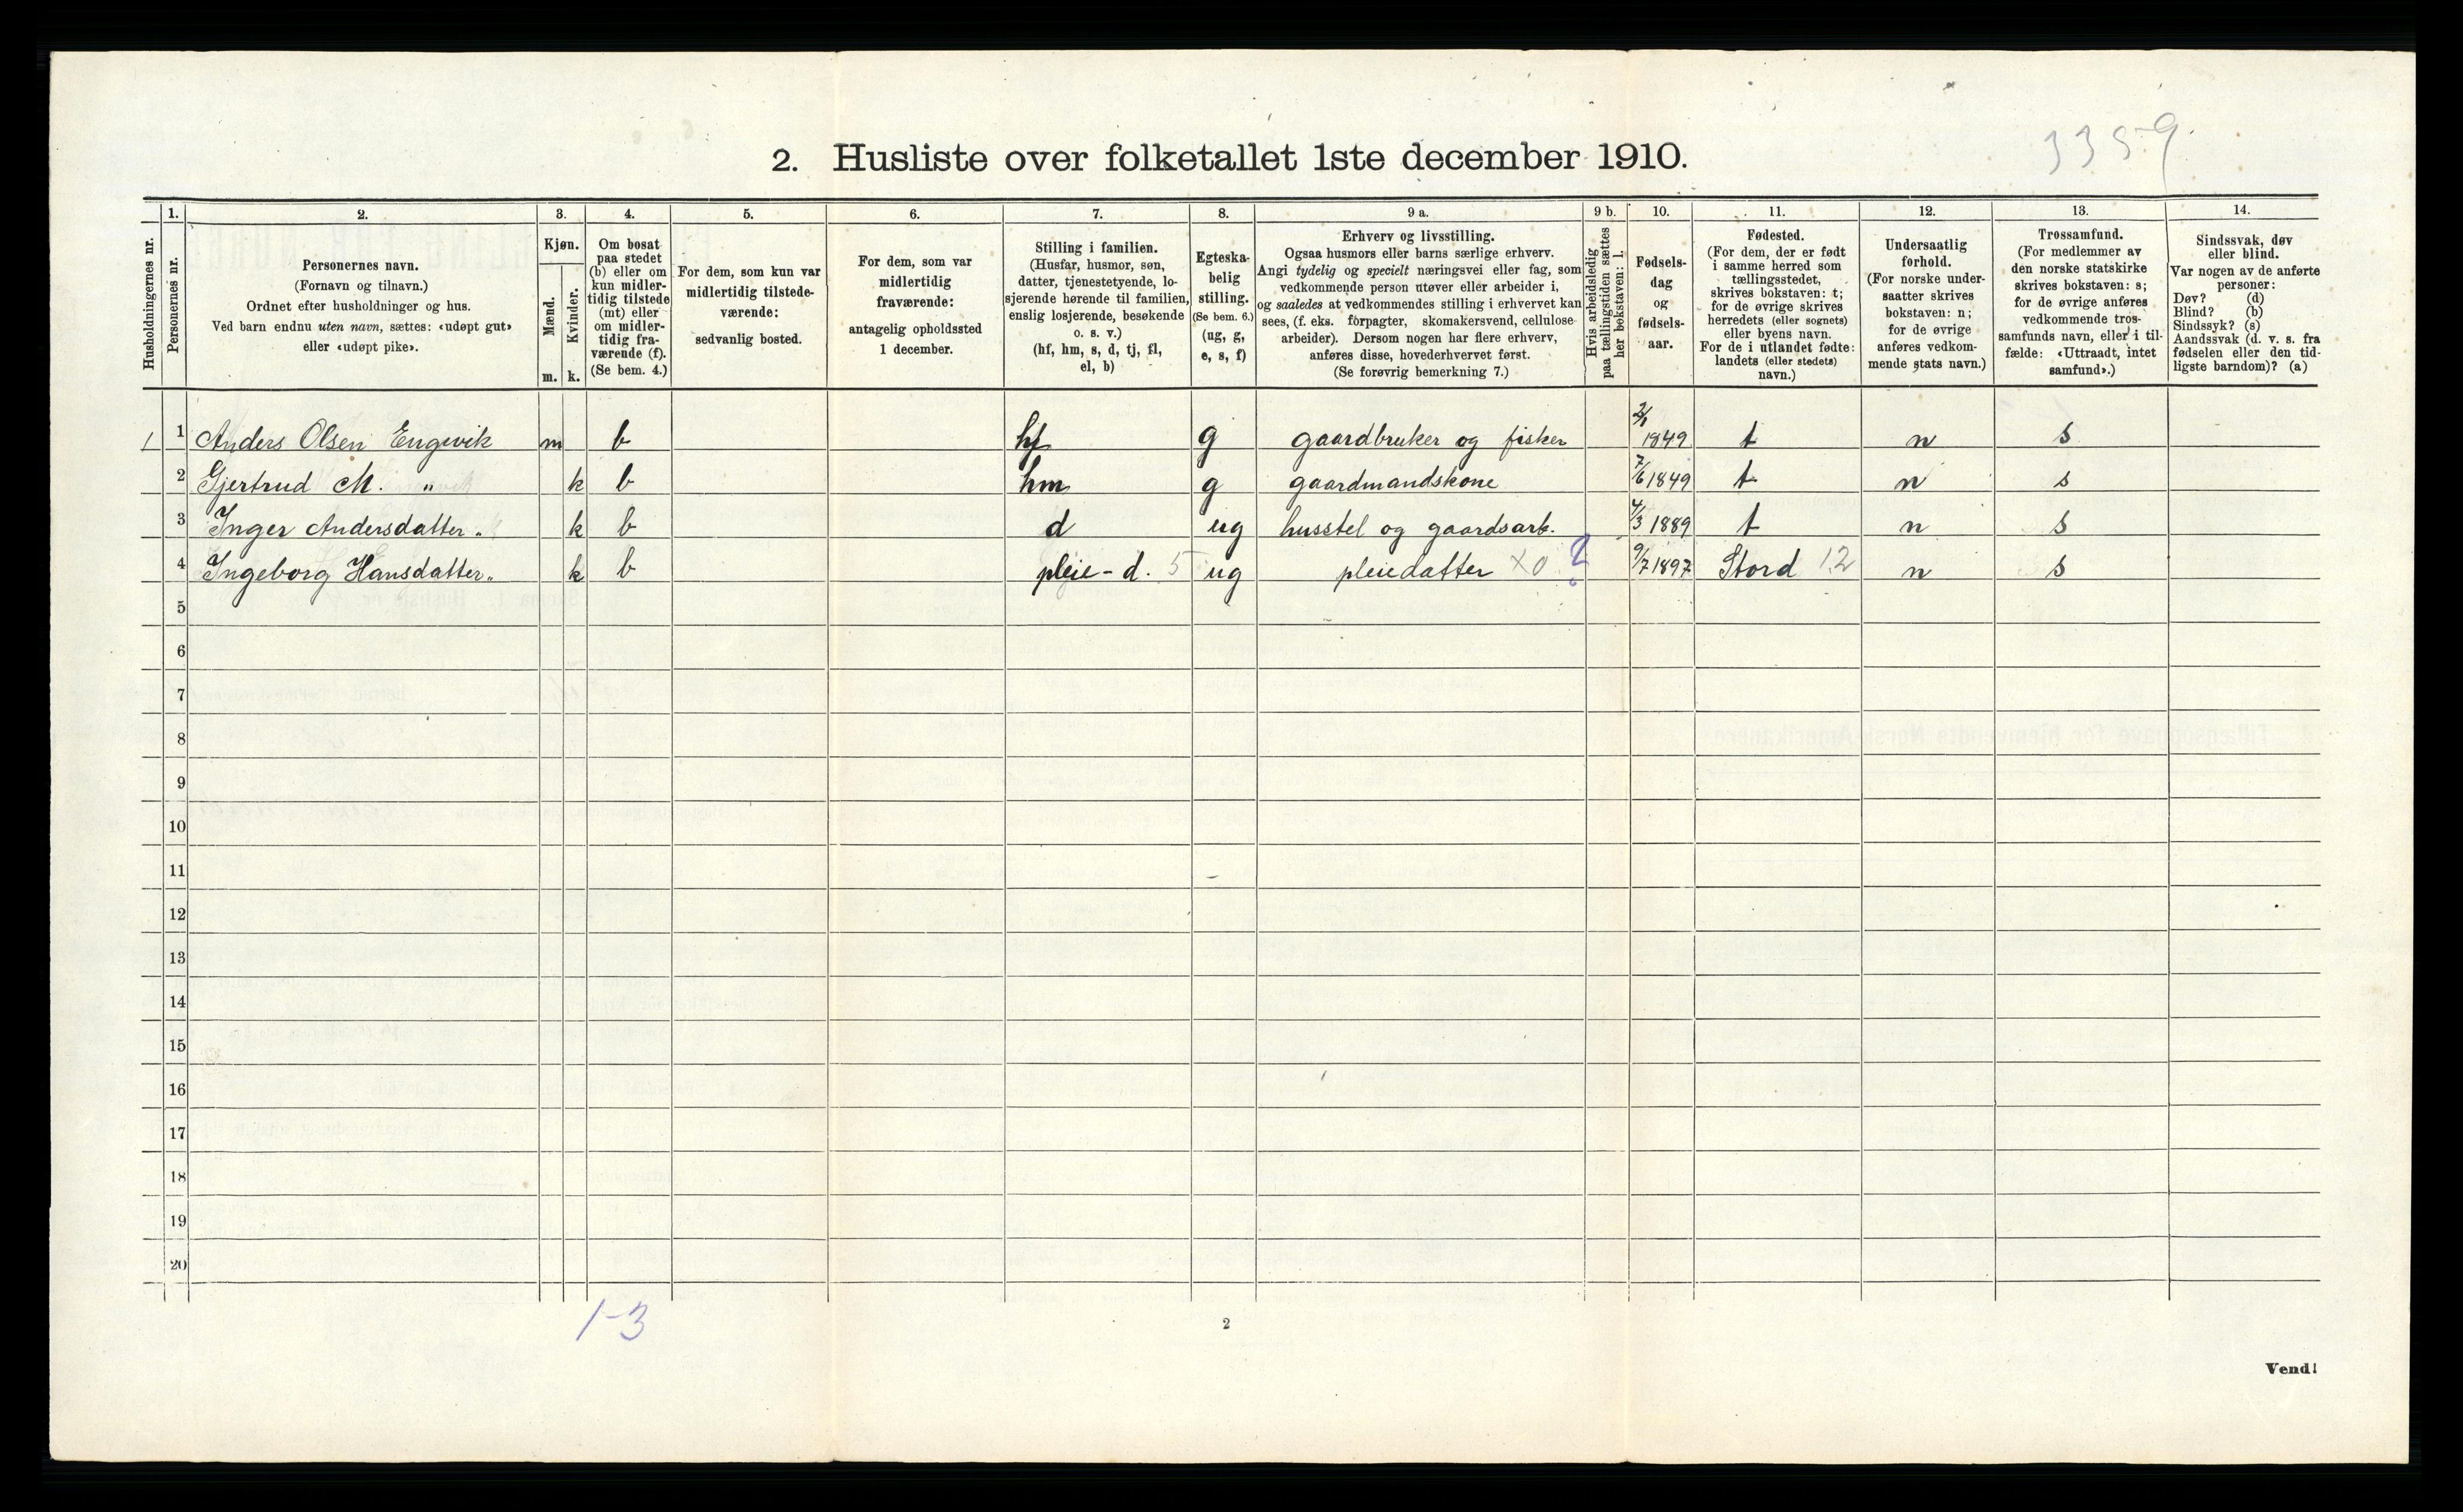 3359
2. Husliste over folketallet 1ste december 1910.
Husholdningernes nr.
1.
Personernes nr.
2.
Personernes navn.
(Fornavn og tilnavn.)
Ordnet efter husholdninger og hus.
Ved barn endnu uten navn, sættes: «udøpt gut»
eller «udøpt pike».
3.
Kjøn.
Mænd.
Kvinder.
m. k.
4.
Om bosat
paa stedet
(b) eller om
kun midler-
tidig tilstede
(mt) eller
om midler-
tidig fra-
værende (f).
(Se bem. 4.)
5.
For dem, som kun var
midlertidig tilstede-
værende:
sedvanlig bosted.
6.
For dem, som var
midlertidig
fraværende:
antagelig opholdssted
1 december.
7.
Stilling i familien.
(Husfar, husmor, søn,
datter, tjenestetyende, lo-
sjerende hørende til familien,
enslig losjerende, besøkende
o. s. v.)
(hf, hm, s, d, tj, fl,
el, b)
8.
Egteska-
belig
stilling.
(Se bem. 6.)
(ug, g,
e, s, f)
9 a.
Erhverv og livsstilling.
Ogsaa husmors eller barns særlige erhverv.
Angi tydelig og specielt næringsvei eller fag, som
vedkommende person utøver eller arbeider i,
og saaledes at vedkommendes stilling i erhvervet kan
sees, (f. eks. forpagter, skomakersvend, cellulose-
arbeider). Dersom nogen har flere erhverv,
anføres disse, hovederhvervet først.
(Se forøvrig bemerkning 7.)
9 b.
Hvis arbeidsledig
paa tællingstiden sættes
her bokstaven: l.
10.
Fødsels-
dag
og
fødsels-
aar.
11.
Fødested.
(For dem, der er født
i samme herred som
tællingsstedet,
skrives bokstaven: t;
for de øvrige skrives
herredets (eller sognets)
eller byens navn.
For de i utlandet fødte:
landets (eller stedets)
navn.)
12.
Undersaatlig
forhold.
(For norske under-
saatter skrives
bokstaven: n;
for de øvrige
anføres vedkom-
mende stats navn.)
13.
Trossamfund.
(For medlemmer av
den norske statskirke
skrives bokstaven: s;
for de øvrige anføres
vedkommende tros-
samfunds navn, eller i til-
fælde: «Uttraadt, intet
samfund».)
14.
Sindssvak, døv
eller blind.
Var nogen av de anførte
personer:
Døv? (d)
Blind? (b)
Sindssyk? (s)
Aandssvak (d. v. s. fra
fødselen eller den tid-
ligste barndom)? (a)
1 1 Anders Olsen Engevik m b hf g gaardbruker og fisker 1849 t n s
2 Gjertrud M. " k b hm g gaardmandskone 7/6 1849 t n s
3 Inger Andersdatter " k b d ug husstel og gaardsarb. 4/3 1889 t n s
4 Ingeborg Hansdatter " k b pleie-d. 5 ug pleiedatter XO ? 9/7 1897 Stord 12 n s
5
6
7
8
9
10
11
12
13
14
15
16
17
18
19
20
1-3
2
Vend!